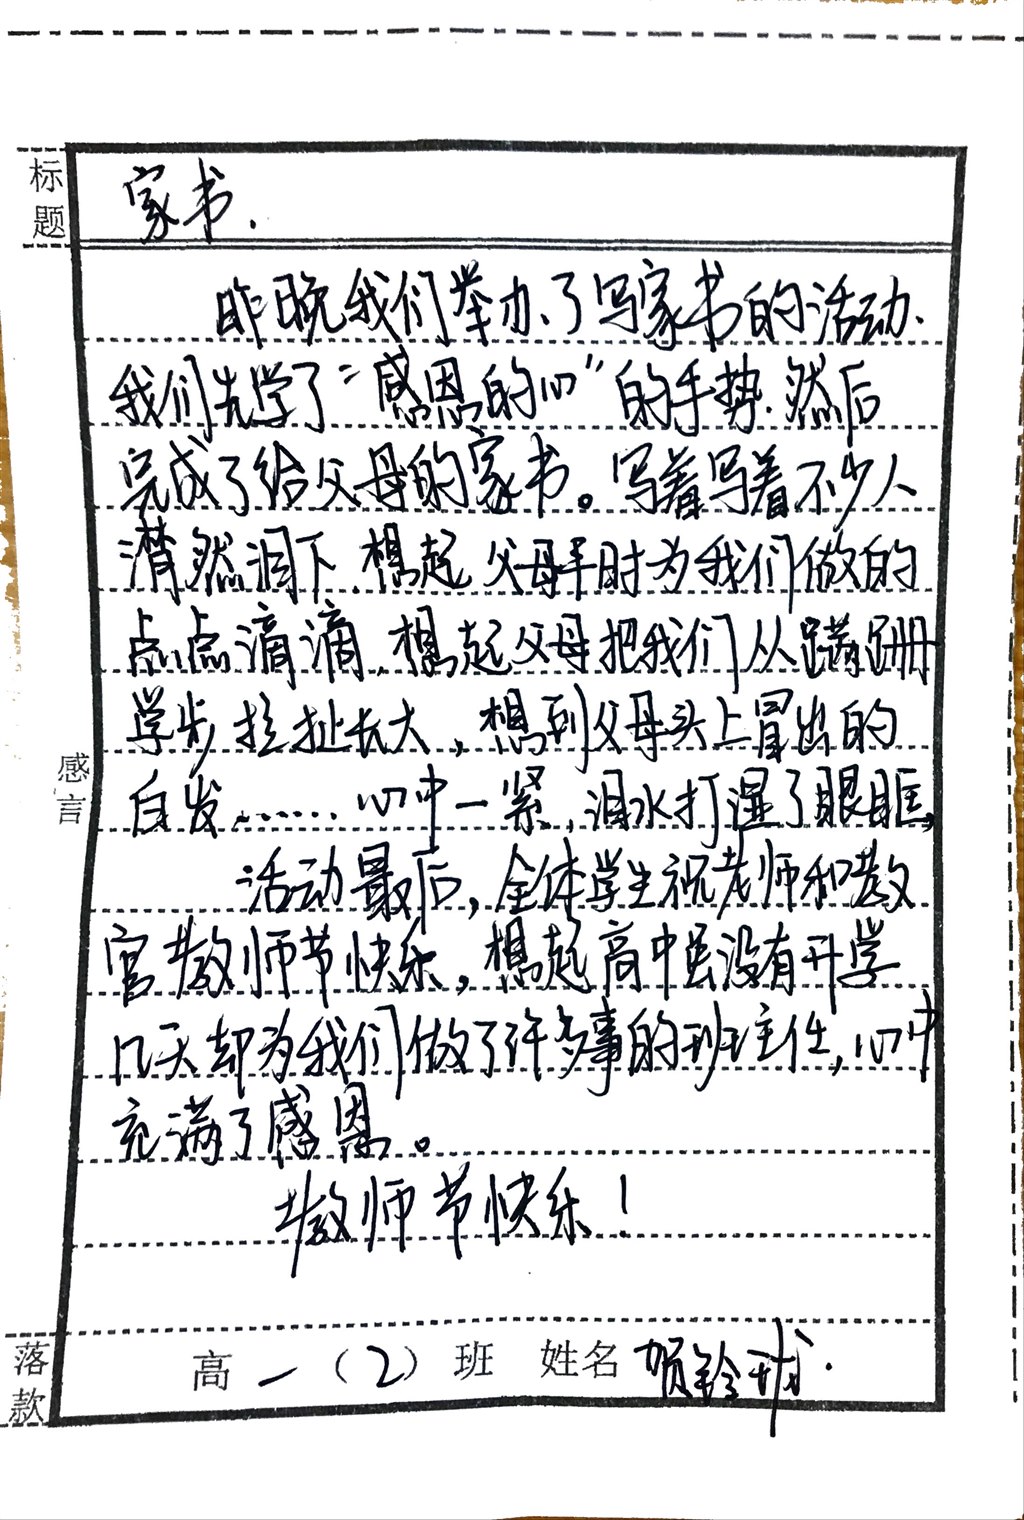 标题
家书.
昨晚我们举办了写家书的活动.
我们先学了“感恩的心”的手势.然后
完成了给父母的家书。写着写着不少人
潸然泪下.想起父母平时为我们做的
点点滴滴,想起父母把我们从蹒跚
学步拉扯长大,想到父母头上冒出的
白发……心中一紧,泪水打湿了眼眶,
感言
活动最后,全体学生祝老师和教
官教师节快乐,想起高中虽没有开学
几天却为我们做了许多事的班主任,心中
充满了感恩。
教师节快乐!
落款
高一(2)班 姓名 贺铃